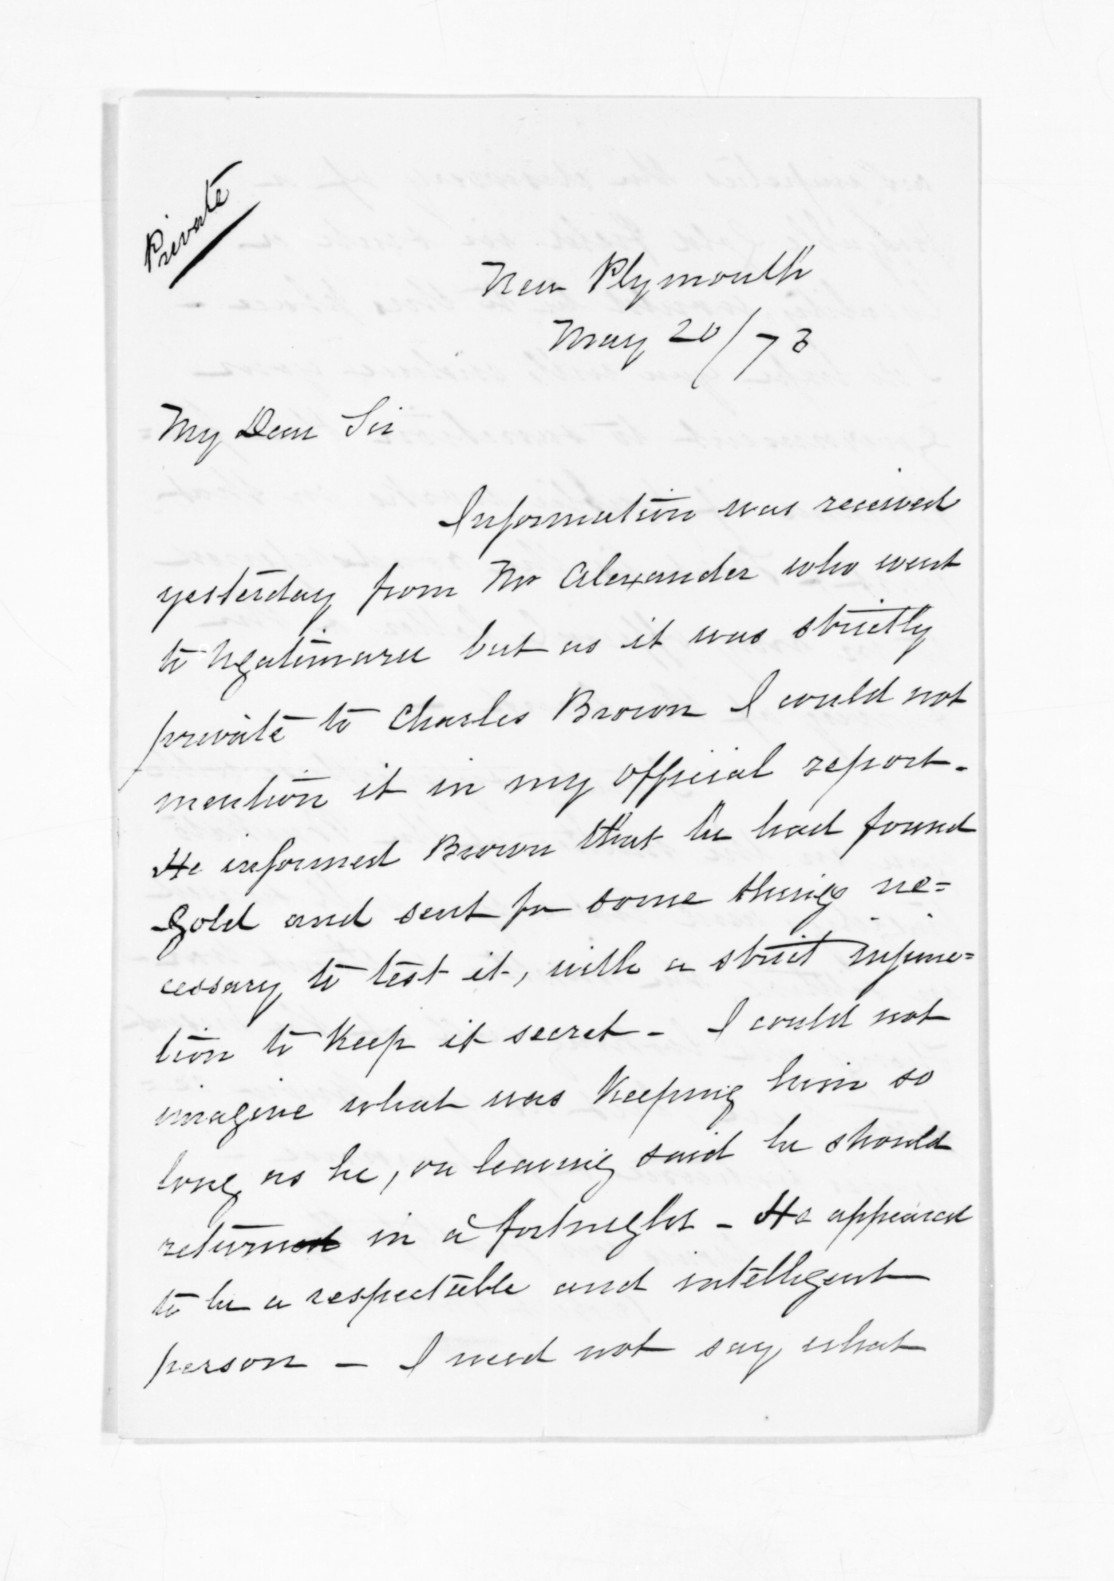 Private
New Plymouth
May 20/73
My Dear Sir
Information was received
yesterday from Mr Alexander who went
to Ngatimaru but as it was strictly
private to Charles Brown I could not
mention it in my official report.
He informed Brown that he had found
Gold and sent for some things ne=
cessary to test it, with a strict injunc=
tion to keep it secret - I could not
imagine what was keeping him so
long as he, on leaving said he should
return in a fortnight - He appeared
to be a respectable and intelligent
person - I need not say what